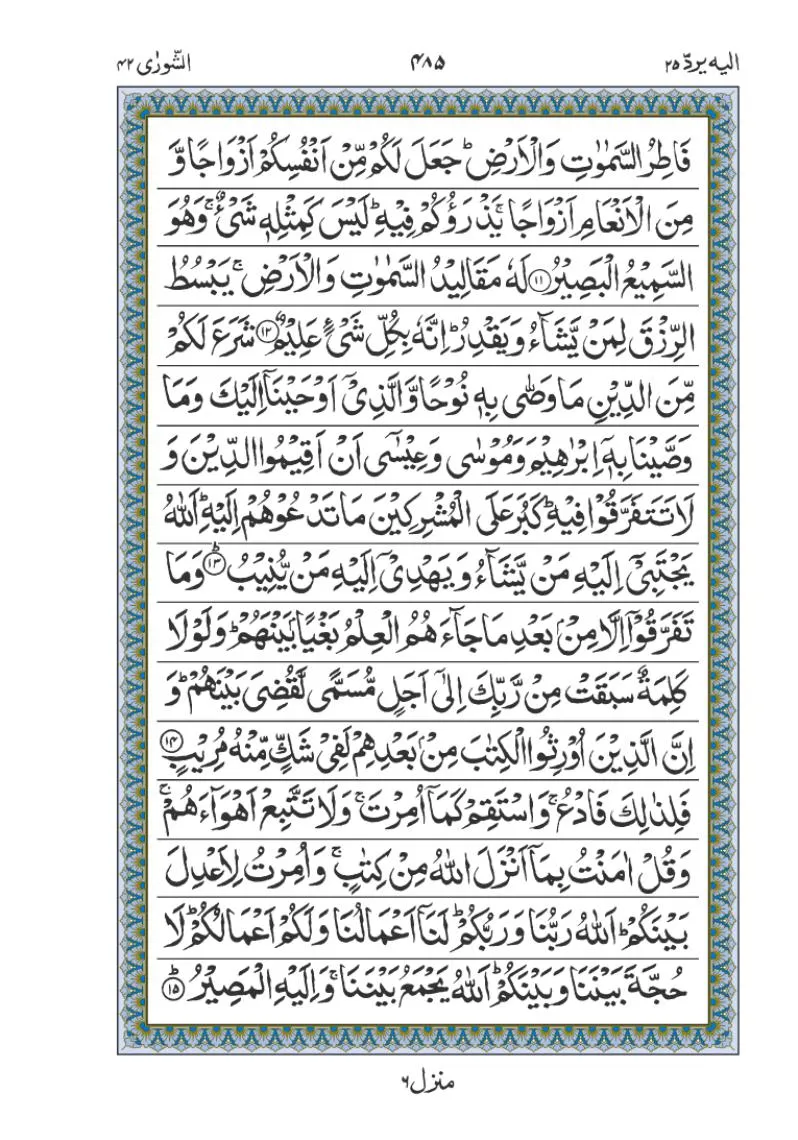 الیه یردّ ۲۵ ۴۸۵ الشّورٰی ۴۲
فَاطِرُ السَّمٰوٰتِ وَالْاَرْضِ ؕ جَعَلَ لَكُمْ مِّنْ اَنْفُسِكُمْ اَزْوَاجًا وَّ
مِنَ الْاَنْعَامِ اَزْوَاجًا ۚ يَذْرَؤُكُمْ فِيْهِ ؕ لَيْسَ كَمِثْلِهٖ شَیْءٌ ۚ وَهُوَ
السَّمِيْعُ الْبَصِيْرُ ۝۱۱ لَهٗ مَقَالِيْدُ السَّمٰوٰتِ وَالْاَرْضِ ۚ يَبْسُطُ
الرِّزْقَ لِمَنْ يَّشَآءُ وَيَقْدِرُ ؕ اِنَّهٗ بِكُلِّ شَیْءٍ عَلِيْمٌ ۝۱۲ شَرَعَ لَكُمْ
مِّنَ الدِّيْنِ مَا وَصّٰى بِهٖ نُوْحًا وَّالَّذِیْۤ اَوْحَيْنَاۤ اِلَيْكَ وَمَا
وَصَّيْنَا بِهٖۤ اِبْرٰهِيْمَ وَمُوْسٰى وَعِيْسٰۤى اَنْ اَقِيْمُوا الدِّيْنَ وَ
لَا تَتَفَرَّقُوْا فِيْهِ ؕ كَبُرَ عَلَى الْمُشْرِكِيْنَ مَا تَدْعُوْهُمْ اِلَيْهِ ؕ اَللّٰهُ
يَجْتَبِیْۤ اِلَيْهِ مَنْ يَّشَآءُ وَيَهْدِیْۤ اِلَيْهِ مَنْ يُّنِيْبُ ؕ۝۱۳ وَمَا
تَفَرَّقُوْۤا اِلَّا مِنْۢ بَعْدِ مَا جَآءَهُمُ الْعِلْمُ بَغْيًۢا بَيْنَهُمْ ؕ وَلَوْلَا
كَلِمَةٌ سَبَقَتْ مِنْ رَّبِّكَ اِلٰۤى اَجَلٍ مُّسَمًّى لَّقُضِیَ بَيْنَهُمْ ؕ وَ
اِنَّ الَّذِيْنَ اُوْرِثُوا الْكِتٰبَ مِنْۢ بَعْدِهِمْ لَفِیْ شَكٍّ مِّنْهُ مُرِيْبٍ ۝۱۴
فَلِذٰلِكَ فَادْعُ ۚ وَاسْتَقِمْ كَمَاۤ اُمِرْتَ ۚ وَلَا تَتَّبِعْ اَهْوَآءَهُمْ ۚ
وَقُلْ اٰمَنْتُ بِمَاۤ اَنْزَلَ اللّٰهُ مِنْ كِتٰبٍ ۚ وَاُمِرْتُ لِاَعْدِلَ
بَيْنَكُمْ ؕ اَللّٰهُ رَبُّنَا وَرَبُّكُمْ ؕ لَنَاۤ اَعْمَالُنَا وَلَكُمْ اَعْمَالُكُمْ ؕ لَا
حُجَّةَ بَيْنَنَا وَبَيْنَكُمْ ؕ اَللّٰهُ يَجْمَعُ بَيْنَنَا ۚ وَاِلَيْهِ الْمَصِيْرُ ؕ۝۱۵
منزل ۶